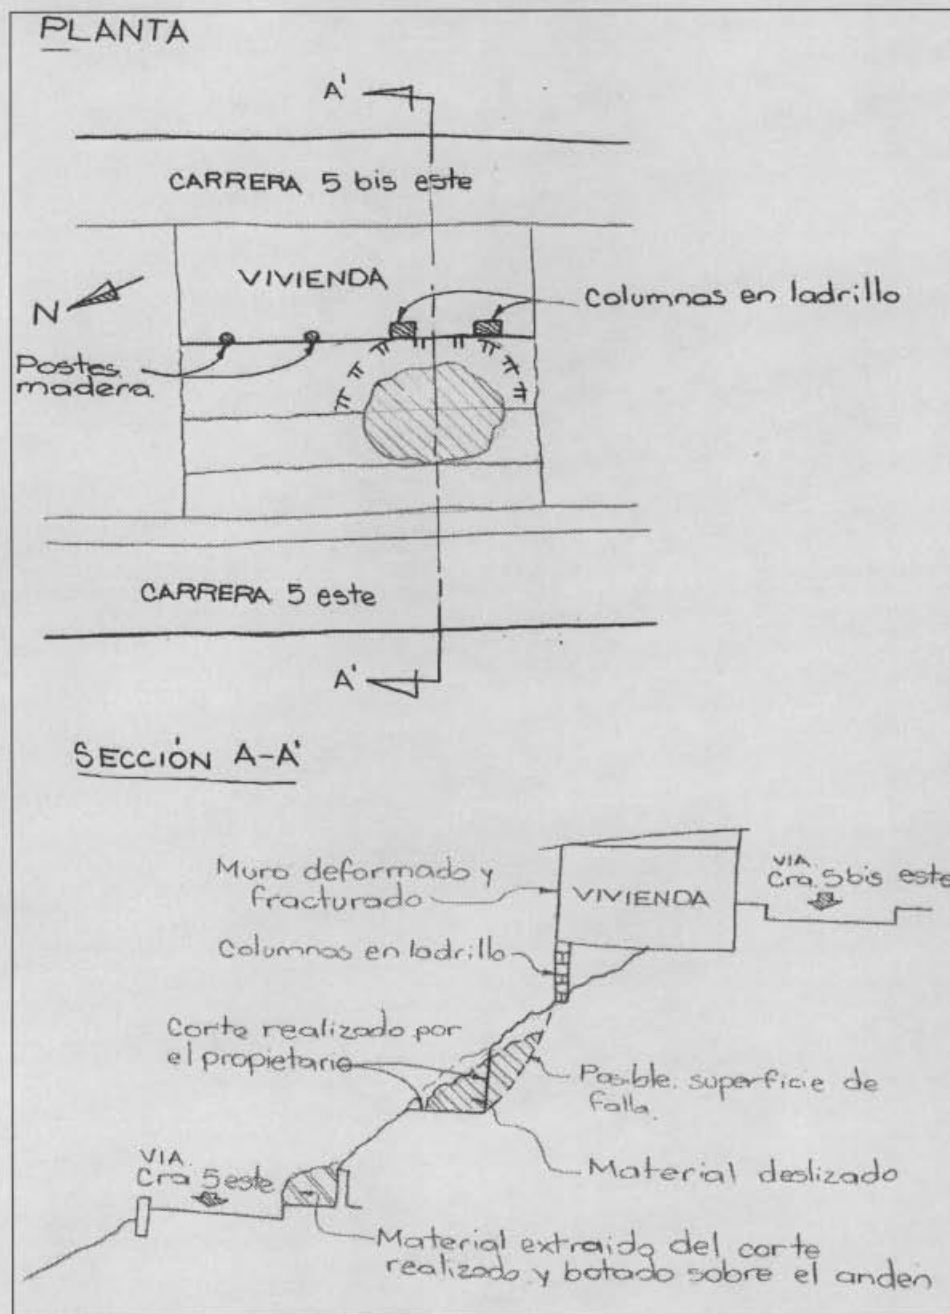 PLANTA
A'
CARRERA 5 bis este
VIVIENDA
N
Columnas en ladrillo
Postes
madera.
CARRERA 5 este
A'
SECCIÓN A-A'
Muro deformado y
fracturado
VIVIENDA
VIA
Cra. 5 bis este
Columnas en ladrillo
Corte realizado por
el propietario
Posible superficie de
falla.
Material deslizado
VIA
Cra 5 este
Material extraido del corte
realizado y botado sobre el anden